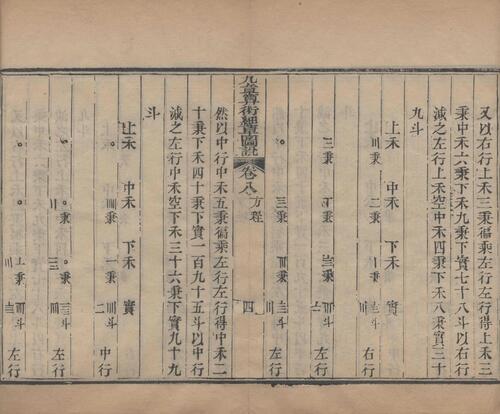 又以右行上禾三秉徧乘左行左行得上禾三
秉中禾六秉下禾九秉下實七十八斗以右行
減之左行上禾空中禾四秉下禾八秉實三十
九斗
上禾 中禾 下禾 實
右行
三秉
左行
三秉
左行
九章算術細草圖說 卷八 方程 四
然以中行中禾五秉徧乘左行左行得中禾二
十秉下禾四十秉下實一百九十五斗以中行
減之左行中禾空下禾三十六秉下實九十九
斗
上禾 中禾 下禾 實
中行
左行
左行